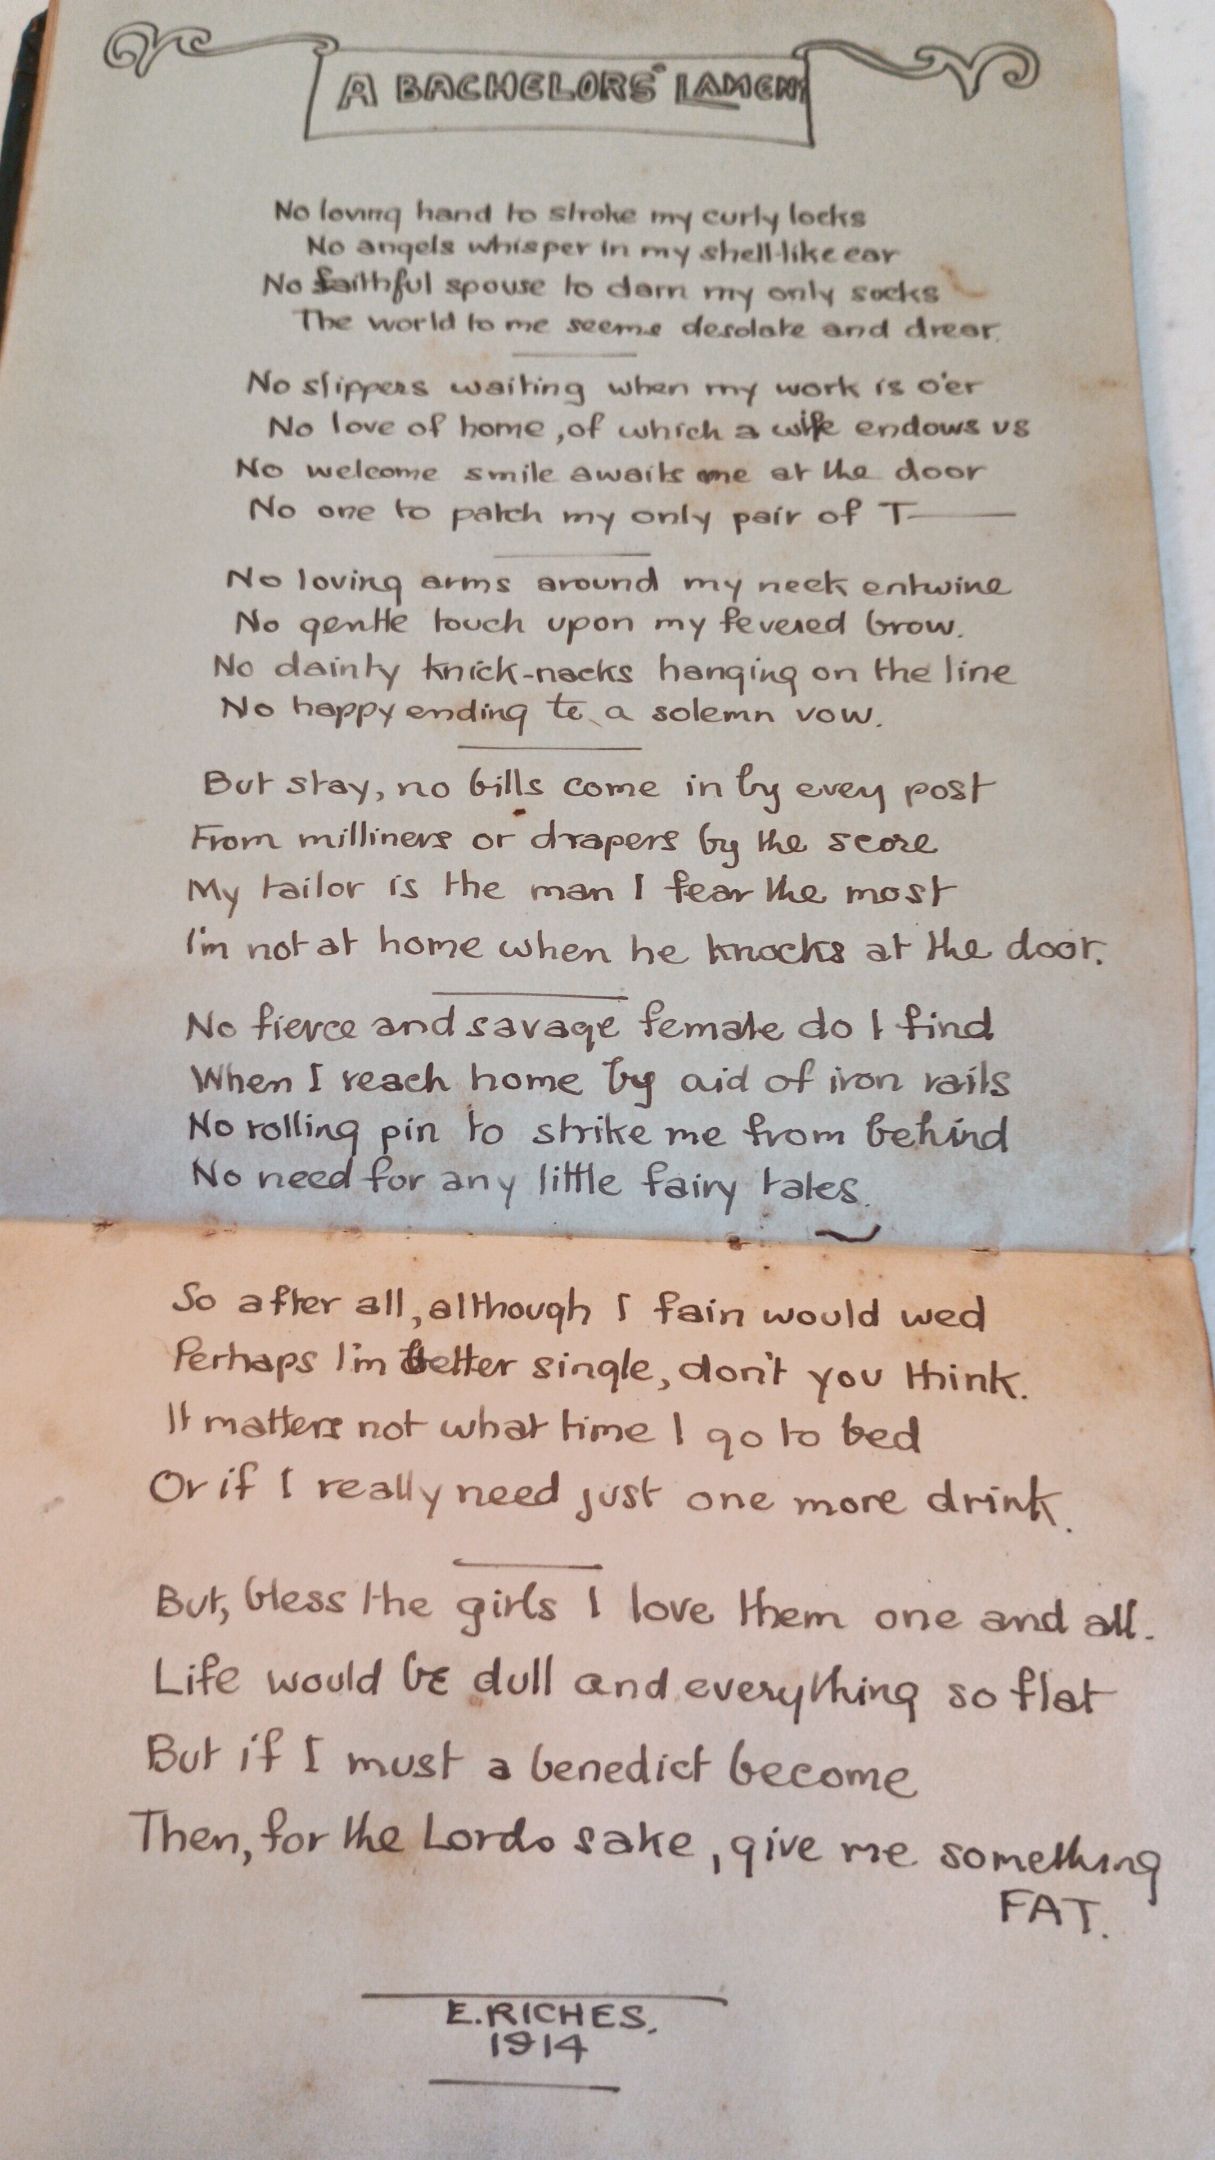 A BACHELORS' LAMENT
No loving hand to stroke my curly locks
No angels whisper in my shell-like ear
No faithful spouse to darn my only socks
The world to me seems desolate and drear.
No slippers waiting when my work is o'er
No love of home, of which a wife endows us
No welcome smile awaits me at the door
No one to patch my only pair of T——
No loving arms around my neck entwine
No gentle touch upon my fevered brow.
No dainty knick-nacks hanging on the line
No happy ending to a solemn vow.
But stay, no bills come in by evey post
From milliners or drapers by the score
My tailor is the man I fear the most
I'm not at home when he knocks at the door.
No fierce and savage female do I find
When I reach home by aid of iron rails
No rolling pin to strike me from behind
No need for any little fairy tales.
So after all, although I fain would wed
Perhaps I'm better single, don't you think.
It matters not what time I go to bed
Or if I really need just one more drink.
But, bless the girls I love them one and all.
Life would be dull and everything so flat
But if I must a benedict become
Then, for the Lords sake, give me something
FAT.
E. RICHES.
1914